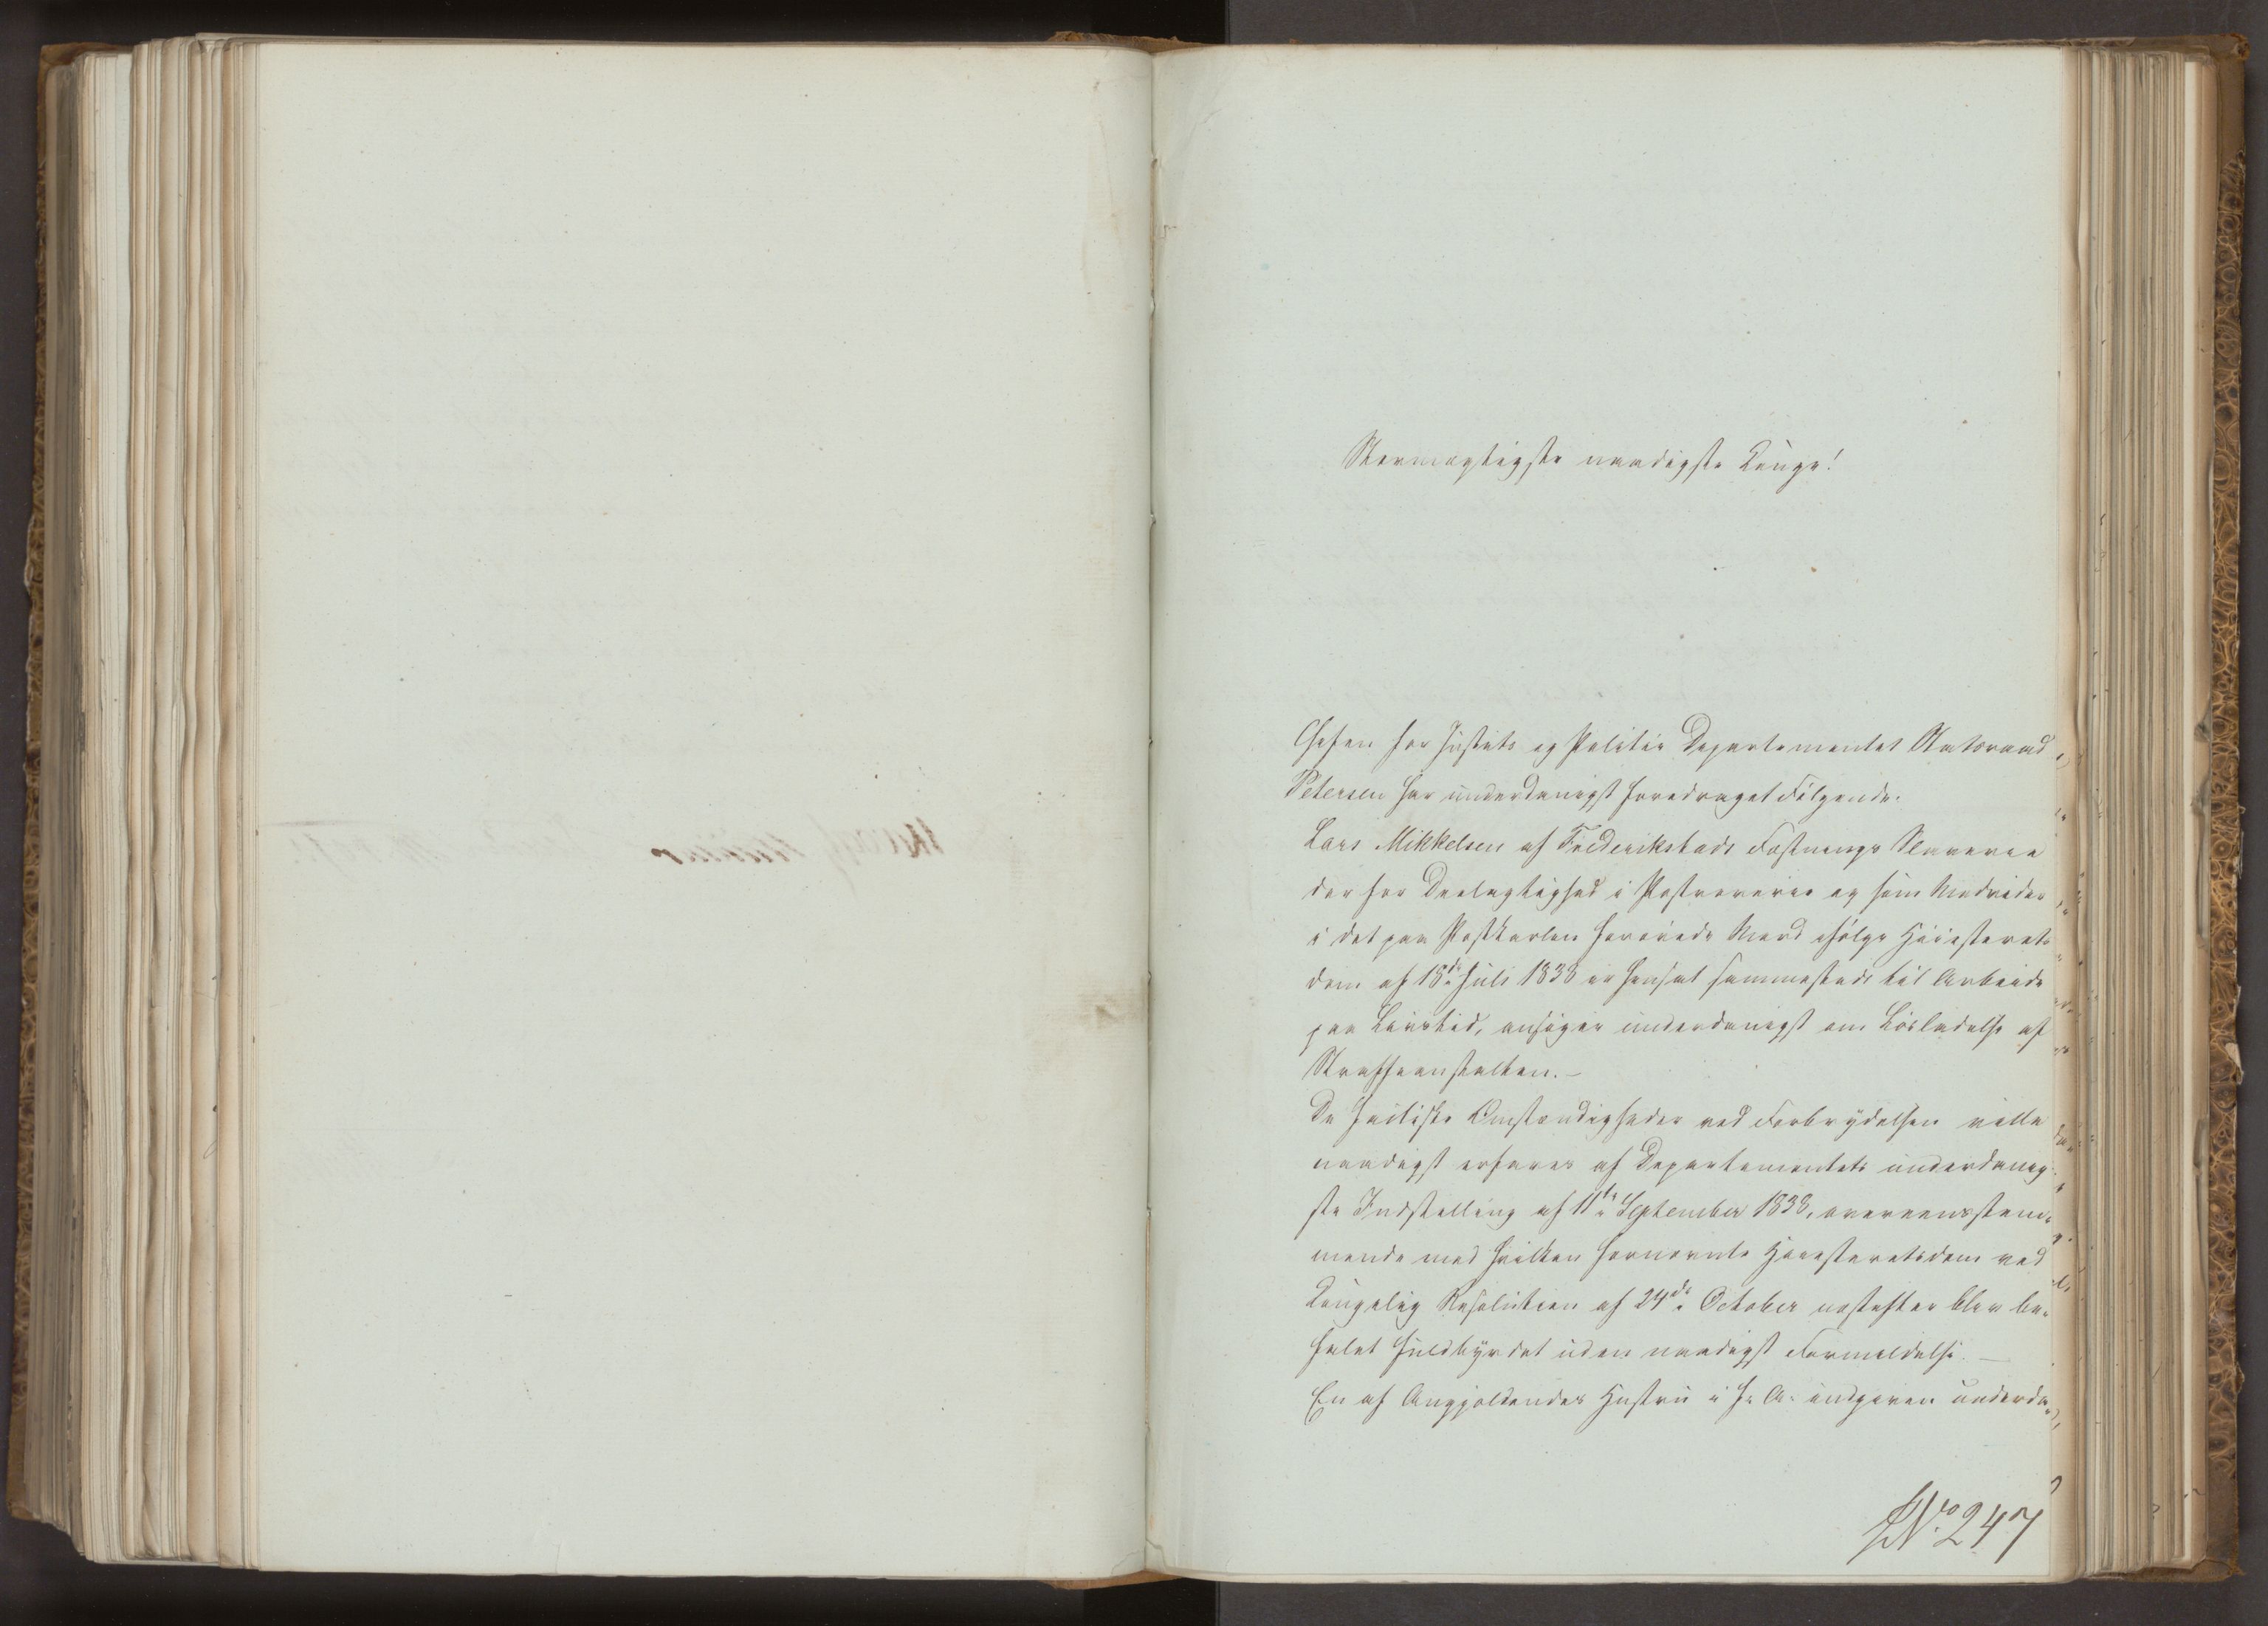 Stormægtigste naadigste Konge!
Chefen for Justits og Politie Departementet Statsraad
Petersen har underdanigst foredraget Følgende:
Lars Mikkelsen af Frederikstads Fæstnings Slaverie
der for Deelagtighed i Postrøverie og som Medvider
i det paa Postkarlen forøvede Mord ifølge Høiesterets
dom af 18de Juli 1838 er hensat sammesteds til Arbeide
paa Livstid, ansøger underdanigst om Løsladelse af
Straffeanstalten. –
De factiske Omstændigheder ved Forbrydelsen ville
naadigst erfares af Departementets underdanig-
ste Indstilling af 11te September 1838, overeensstem-
mende med hvilken fornævnte Høiesteretsdom ved
Kongelig Resolution af 24de October næstefter blev be-
falet fuldbyrdet uden naadigst Formildelse. –
En af Angjældendes Hustru i f. A. indgiven underda-
No 247